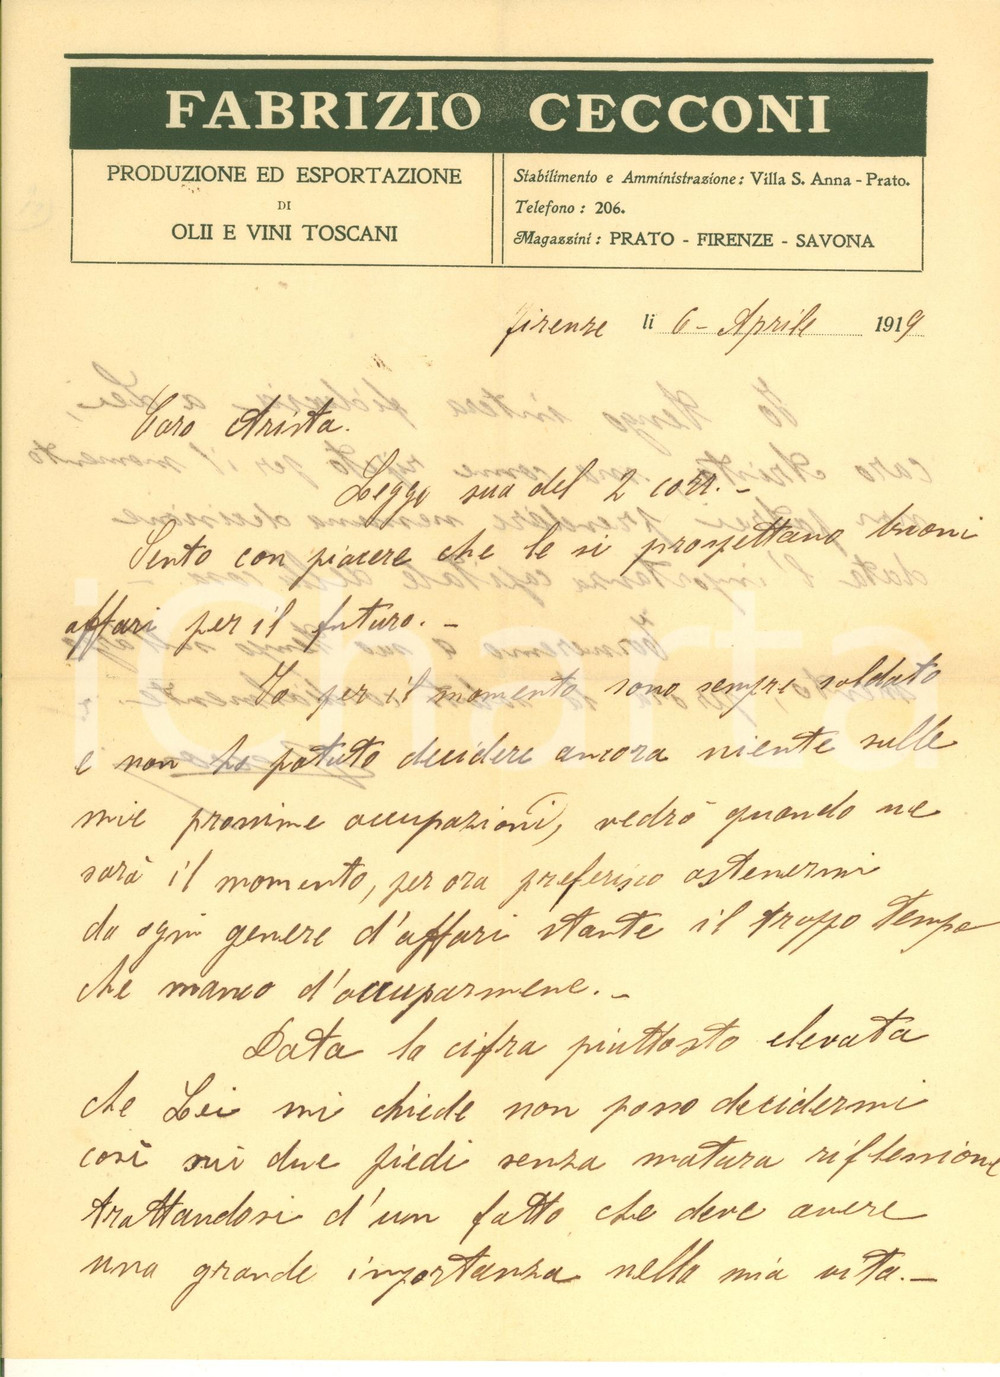 FABRIZIO CECCONI
PRODUZIONE ED ESPORTAZIONE
DI
OLII E VINI TOSCANI
Stabilimento e Amministrazione: Villa S. Anna - Prato.
Telefono: 206.
Magazzini: PRATO - FIRENZE - SAVONA
Firenze li 6 - Aprile 1919
Caro Arista.
Leggo sua del 2 corr. -
Sento con piacere che le si prospettano buoni
affari per il futuro. -
Io per il momento sono sempre soldato
e non ho potuto decidere ancora niente sulle
mie prossime occupazioni, vedrò quando ne
sarà il momento, per ora preferisco astenermi
da ogni genere d'affari stante il troppo tempo
che manco d'occuparmene. -
Data la cifra piuttosto elevata
che Lei mi chiede non posso decidermi
così sui due piedi senza matura riflessione
trattandosi d'un fatto che deve avere
una grande importanza nella mia vita. -
iCharta